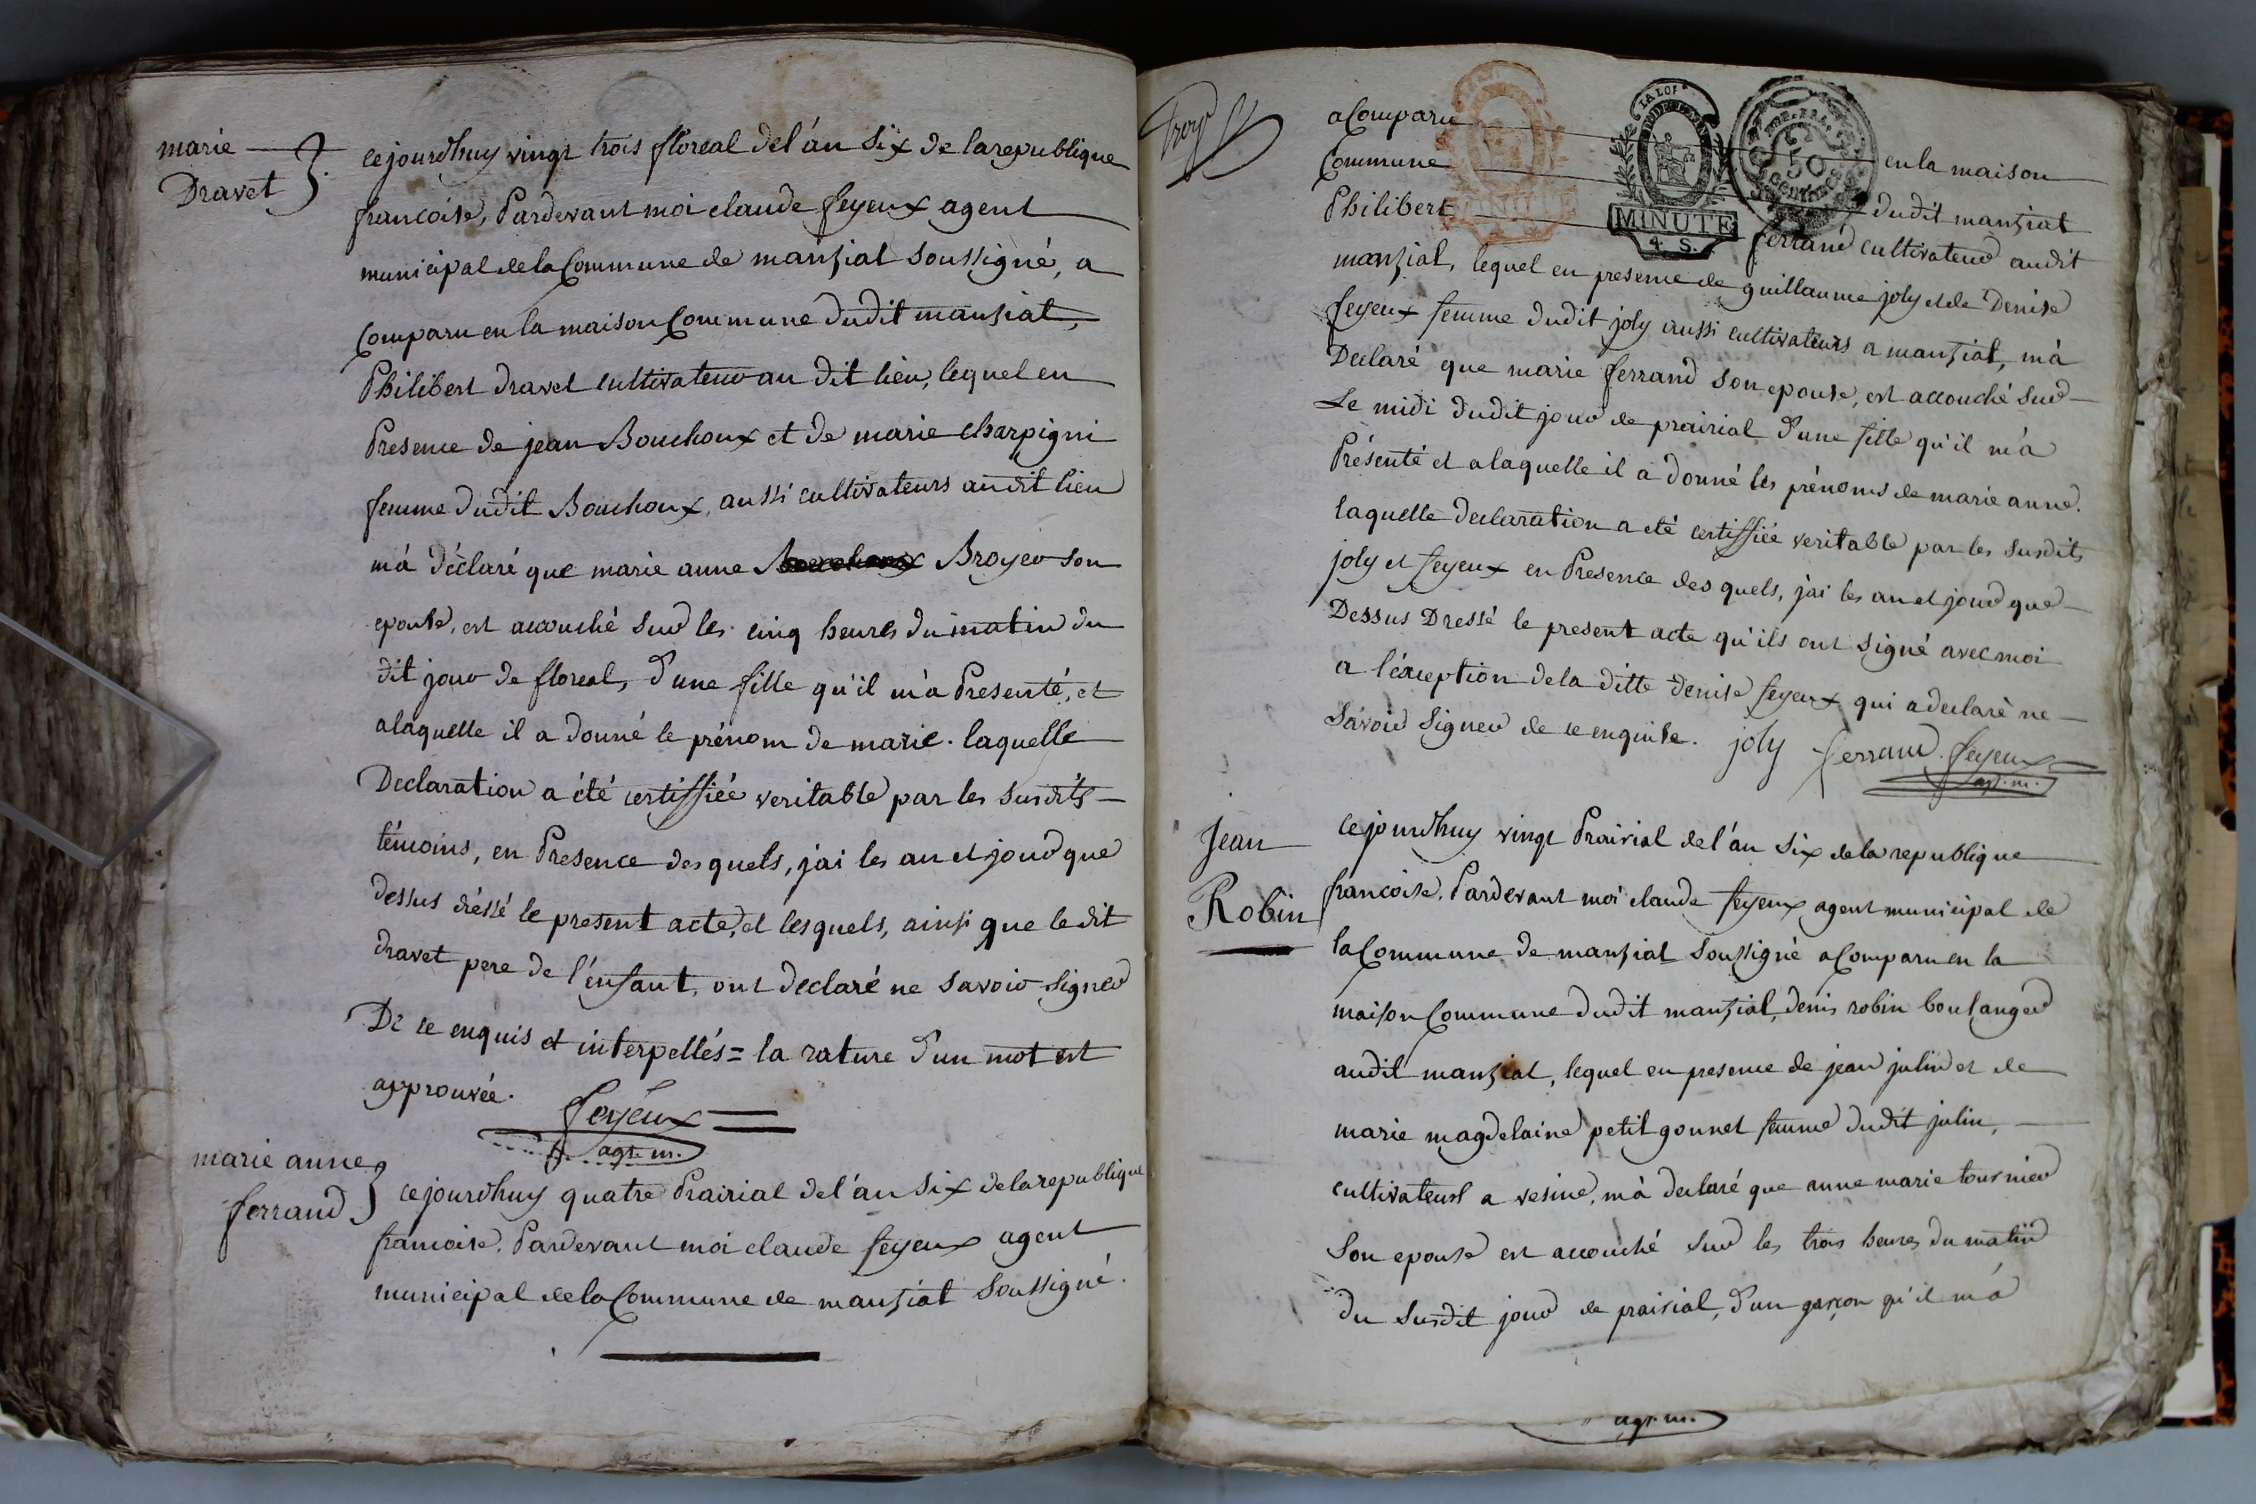 marie
Dravet
cejourdhuy vingt trois floreal del'án six de larepublique
francoise, Pardevant moi claude feyeux agent
municipal delaCommune de mantziat soussigné, a
Comparu en la maison Commune dudit mantziat,
Philibert dravet cultivateur au dit lieu, lequel en
Presence de jean Bouchoux et de marie charpigni
femme dudit Bouchoux, aussi cultivateurs audit lieu
m'á déclaré que marie anne Bouchoux Broyer son
epouse, est accouché sur les cinq heures du matin du
dit jour de floreal, d'une fille qu'il m'a Presenté, et
alaquelle il a donné le prénom de marie. laquelle
Declaration a été certiffiée veritable par les susdits
témoins, en Presence desquels, j'ai les an et jour que
dessus dréssé le present acte, et lesquels, ainsi que le dit
dravet pere de l'énfant, ont declaré ne savoir signer
De ce enquis et interpellés = la rature d'un mot est
approuvée.
feyéux
agt. m.
marie anne
ferrand
cejourdhuy quatre Prairial del'án six delarepublique
francoise. Pardevant moi claude feyeux agent
municipal delaCommune de mantziat soussigné.
aComparu en la maison
Commune dudit mantziat
Philibert ferrand cultivateur audit
mantziat, lequel en presence de guillaume joly et de Denise
feyeux femme dudit joly aussi cultivateurs a mantziat, m'á
Declaré que marie ferrand son epouse, est accouché sur
Le midi dudit jour de prairial d'une fille qu'il m'a
Présenté et alaquelle il a donné les prénoms de marie anne.
laquelle declaration a eté certiffiée veritable par les susdits
joly et feyeux en Presence des quels, j'ai les an et jour que
Dessus Dressé le present acte qu'ils ont signé avec moi
a l'éxception dela ditte denise feyeux qui a declaré ne
savoir signer de ce enquise. joly ferrand. feyeux
agt. m.
LA LOI
MINUTE
4. S.
50
Jean
Robin
cejourdhuy vingt Prairial del'án six dela republique
francoise. Pardevant moi claude feyeux agent municipal de
laCommune de mantziat soussigné aComparu en la
maison Commune dudit mantziat, denis robin boulanger
audit mantziat, lequel en presence de jean julin et de
marie magdelaine petit gonnet femme dudit julin,
cultivateurs a vesine, m'á declaré que anne marie tournier
son epouse est accouché sur les trois heures du matin
du susdit jour de prairial, d'un garçon qu'il m'á
agt. m.